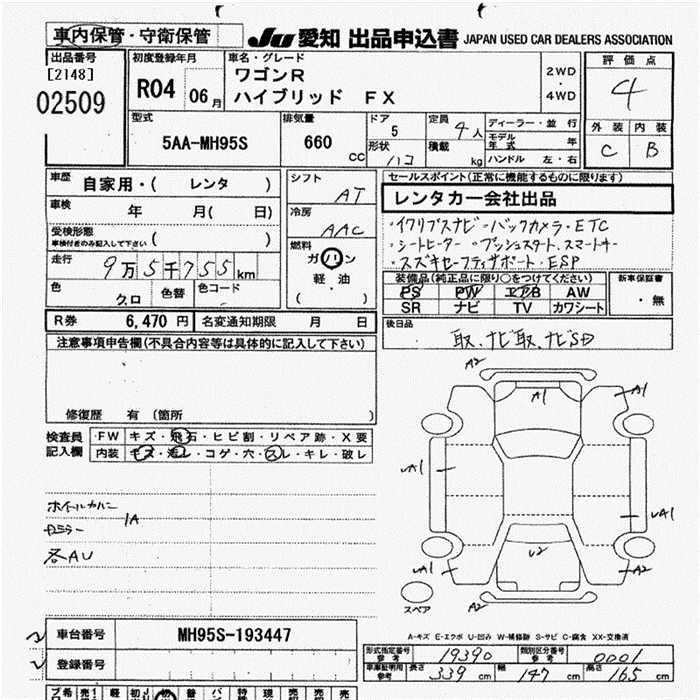 車内保管・守衛保管
JU 愛知 出品申込書 JAPAN USED CAR DEALERS ASSOCIATION
出品番号
[2148]
02509
初度登録年月
R04 06月
車名・グレード
ワゴンR
ハイブリッド FX
2WD
4WD
評価点
4
外装 内装
C B
型式
5AA-MH95S
排気量
660 cc
ドア
5
形状
ハコ
定員
4人
積載
kg
ディーラー・並行
モデル年式 年
ハンドル 左・右
車歴
自家用・( レンタ )
車検
年 月( 日)
受検形態
車検付きのみ記入して下さい ( )
走行
9万5千755km
色
クロ
色替
色コード
シフト
AT
冷房
AAC
燃料
ガソリン
軽・油
( )
セールスポイント(正常に機能するものに限ります)
レンタカー会社出品
・イクリプスナビ・バックカメラ・ETC
・シートヒーター・プッシュスタート、スマートキー
・スズキセーフティサポート・ESP
装備品(純正品に限り○をつけてください)
PS PW エアB AW
SR ナビ TV カワシート
新車保証書
・無
後日品
取、ナビ取、ナビSD
R券 6,470円
名変通知期限 月 日
注意事項申告欄(不具合内容等は具体的に記入して下さい)
修復歴 有 (箇所 )
検査員
記入欄
・FW キズ・飛石・ヒビ割・リペア跡・X要
内装 キズ・汚レ・コゲ・穴・スレ・キレ・破レ
ホイールカバー
1A
各AU
A2
A1
A1
A1
A1
U2
A1
A2
A2
スペア
A-キズ E-エクボ U-凹み W-補修跡 S-サビ C-腐食 XX-交換済
車台番号 MH95S-193447
登録番号
形式指定番号 参考 19390
類別区分番号 参考 0001
車庫証明用 参考 長さ 339 cm 幅 147 cm 高さ 165 cm